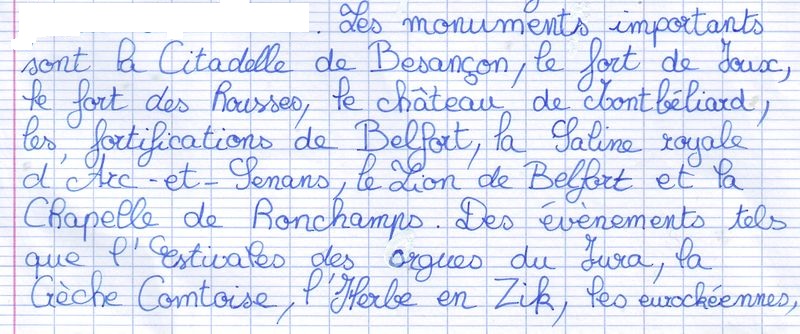 . Les monuments importants
sont la Citadelle de Besançon, le fort de Joux,
le fort des Rousses, le château de Montbéliard,
les fortifications de Belfort, la Saline royale
d'Arc-et-Senans, le Lion de Belfort et la
Chapelle de Ronchamps. Des évènements tels
que l'Estivales des orgues du Jura, la
Crèche Comtoise, l'Herbe en Zik, les eurockéennes,